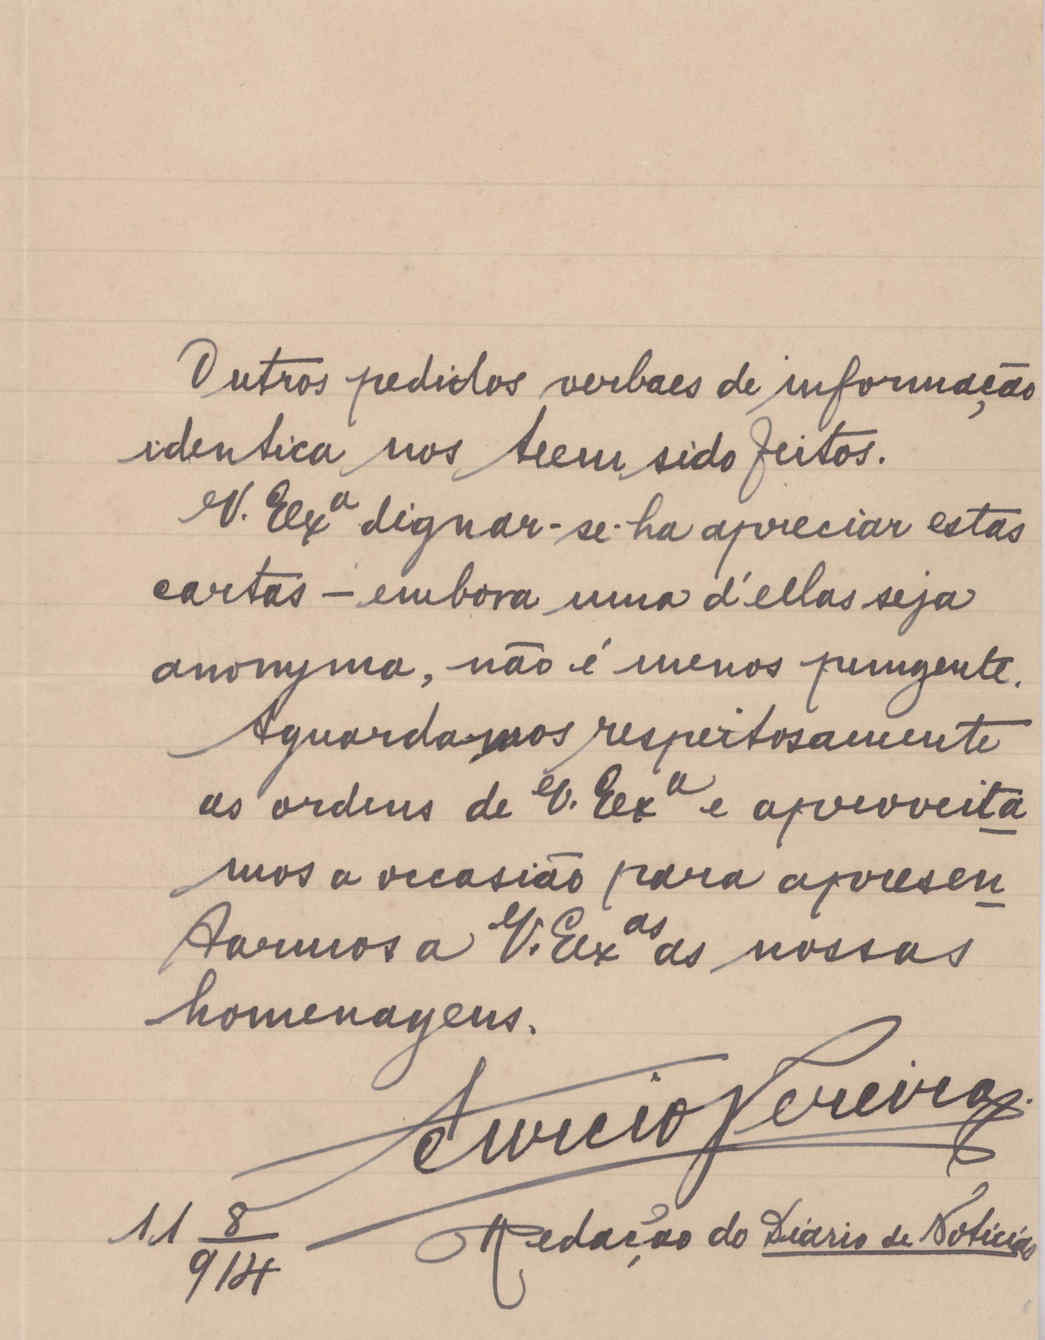 Outros pedidos verbaes de informação
identica nos teem sido feitos.
V. Exª dignar-se-ha apreciar estas
cartas – embora uma d'ellas seja
anonyma, não é menos pungente.
Aguardamos respeitosamente
as ordens de V. Exª e aproveita
mos a occasião para apresen
tarmos a V. Exas as nossas
homenagens.
Pereira
11 8/914
Redação do Diario de Noticias